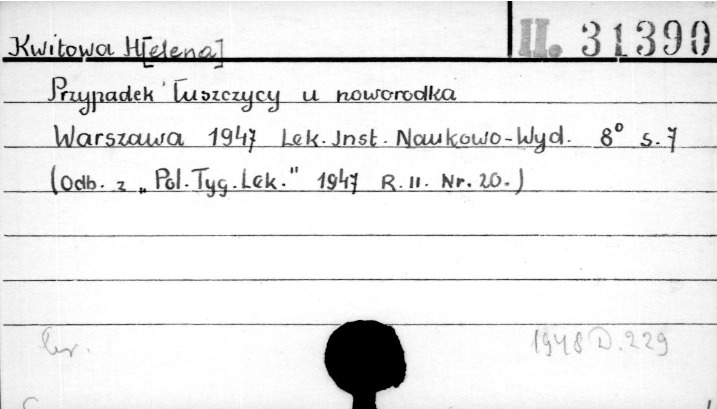 Kwitowa H[elena]
II. 31390
Przypadek łuszczycy u noworodka
Warszawa 1947 Lek. Inst. Naukowo-Wyd. 8° s. 7
(Odb. z „Pol. Tyg. Lek." 1947 R. II. Nr. 20.)
1948 D. 229